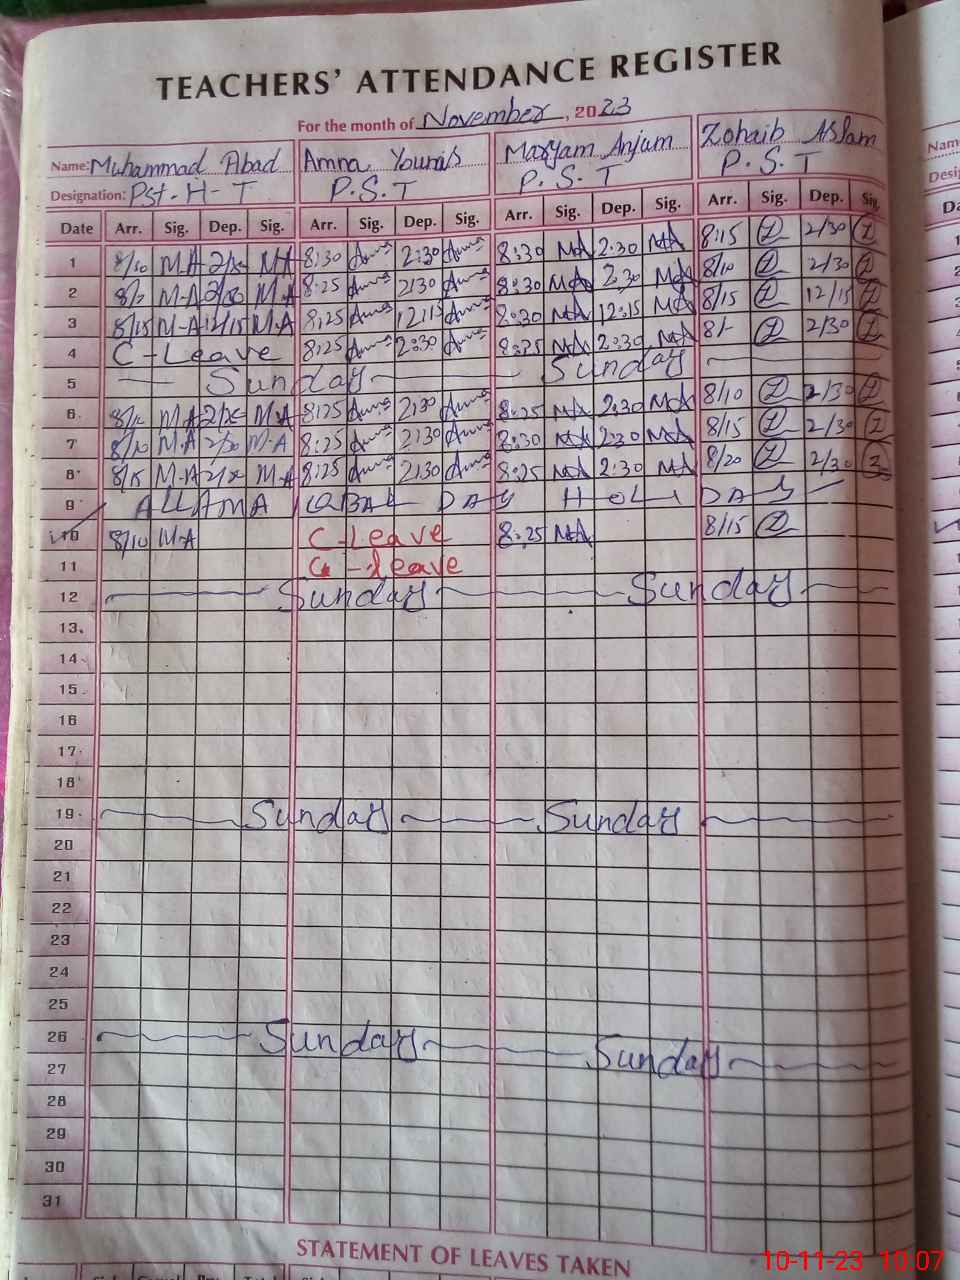 TEACHERS' ATTENDANCE REGISTER
For the month of November, 2023
Name: Muhammad Abad Amna Younis Maryam Anjum Zohaib Aslam
Designation: Pst - H - T P.S.T P.S.T P.S.T
Date Arr. Sig. Dep. Sig. Arr. Sig. Dep. Sig. Arr. Sig. Dep. Sig. Arr. Sig. Dep. Sig.
1 M-A 8:30 2:30 8:30 MA 2:30 MA 8/15 2/30
2 M-A M-A 8:25 2:30 8:30 MA 2:30 MA 8/10 2/30
3 8/15 M-A 12/15 M-A 8:25 12:15 8:30 MA 12:15 MA 8/15 12/15
4 C-Leave 8:25 2:30 8:25 MA 2:30 MA 2/30
5 Sunday Sunday
6 M-A M-A 8:25 2:30 8:25 MA 2:30 MA 8/10 2/30
7 8/10 M-A 2/30 M-A 8:25 2:30 8:30 MA 2:30 MA 8/15 2/30
8 8/15 M-A M-A 8:25 2:30 8:25 MA 2:30 MA 8/20 2/30
9 ALLAMA IQBAL DAY HOLIDAY
10 8/10 M-A C-Leave 8:25 MA 8/15
11 C-leave
12 Sunday Sunday
13
14
15
16
17
18
19 Sunday Sunday
20
21
22
23
24
25
26 Sunday Sunday
27
28
29
30
31
STATEMENT OF LEAVES TAKEN
10-11-23 10:07